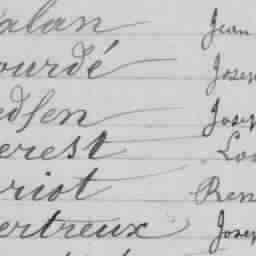 alan Jean
ourdé Josep
edsen Josep
erest Lou
riot Ren
ertreux Josep